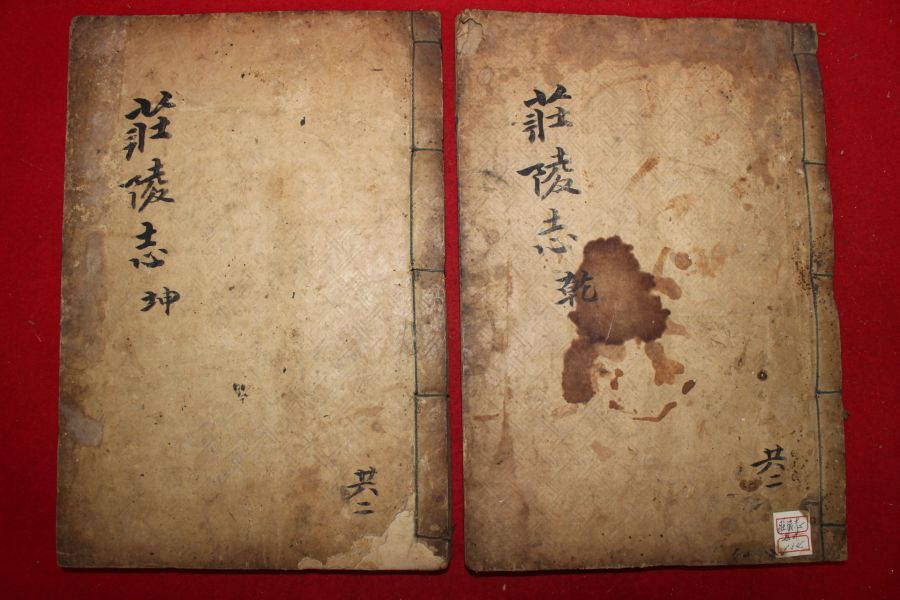 莊陵志 坤
共二
莊陵志 乾
共二
莊陵志